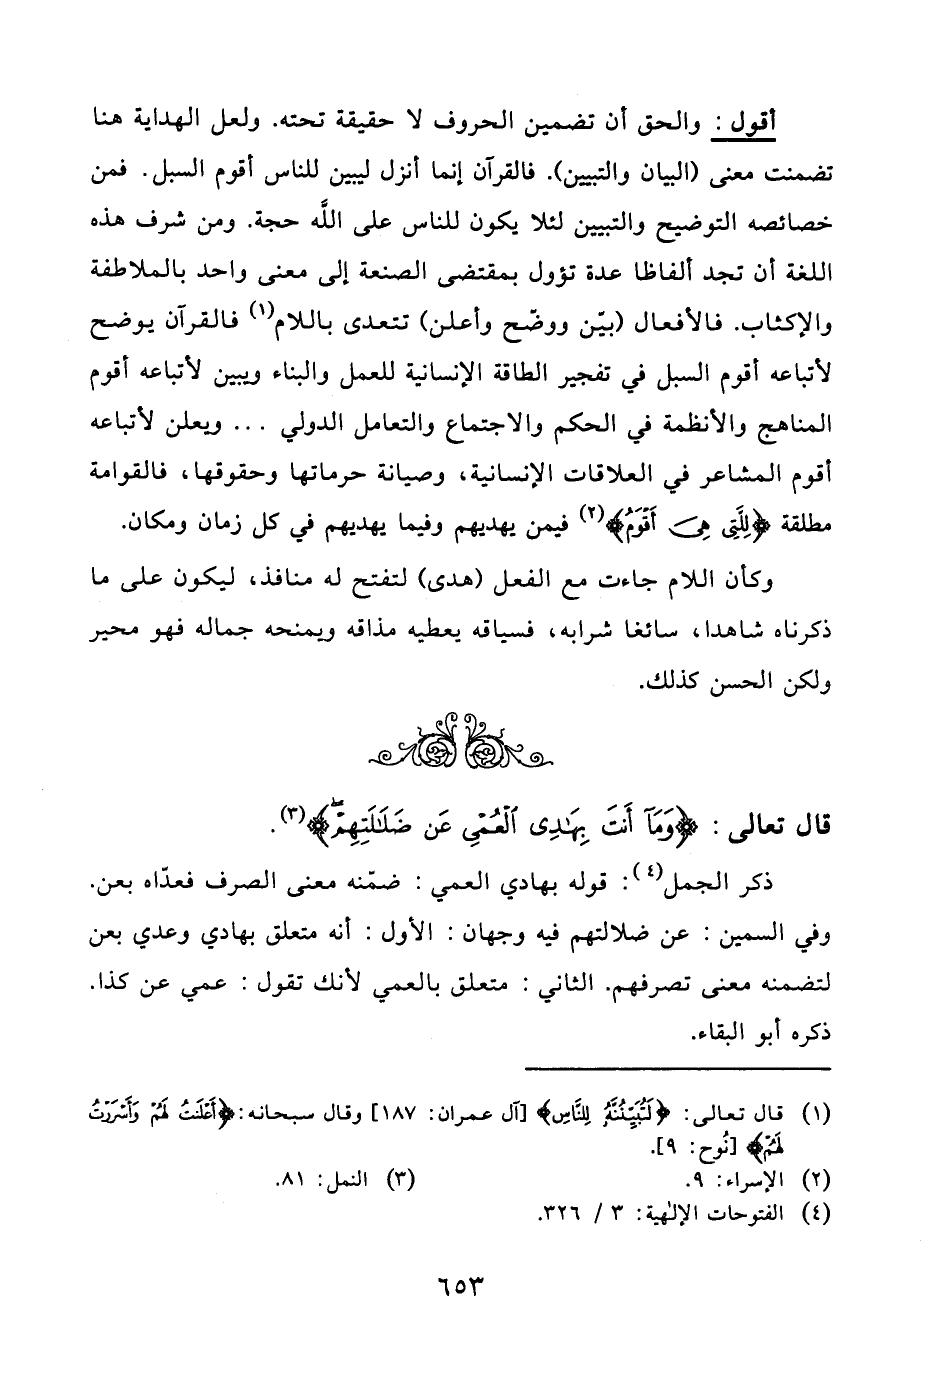 أقول : والحق أن تضمين الحروف لا حقيقة تحته. ولعل الهداية هنا
تضمنت معنى (البيان والتبيين). فالقرآن إنما أنزل ليبين للناس أقوم السبل. فمن
خصائصه التوضيح والتبيين لئلا يكون للناس على اللَّه حجة. ومن شرف هذه
اللغة أن تجد ألفاظا عدة تؤول بمقتضى الصنعة إلى معنى واحد بالملاطفة
والإكثاب. فالأفعال (بيّن ووضّح وأعلن) تتعدى باللام(١) فالقرآن يوضح
لأتباعه أقوم السبل في تفجير الطاقة الإنسانية للعمل والبناء ويبين لأتباعه أقوم
المناهج والأنظمة في الحكم والاجتماع والتعامل الدولي ... ويعلن لأتباعه
أقوم المشاعر في العلاقات الإنسانية، وصيانة حرماتها وحقوقها، فالقوامة
مطلقة ﴿لِلَّتِى هِىَ أَقْوَمُ﴾(٢) فيمن يهديهم وفيما يهديهم في كل زمان ومكان.
وكأن اللام جاءت مع الفعل (هدى) لتفتح له منافذ، ليكون على ما
ذكرناه شاهدا، سائغا شرابه، فسياقه يعطيه مذاقه ويمنحه جماله فهو محير
ولكن الحسن كذلك.
قال تعالى : ﴿وَمَآ أَنتَ بِهَٰدِى ٱلْعُمْىِ عَن ضَلَٰلَتِهِمْۖ﴾(٣).
ذكر الجمل(٤): قوله بهادي العمي : ضمّنه معنى الصرف فعدّاه بعن.
وفي السمين : عن ضلالتهم فيه وجهان : الأول : أنه متعلق بهادي وعدي بعن
لتضمنه معنى تصرفهم. الثاني : متعلق بالعمي لأنك تقول : عمي عن كذا.
ذكره أبو البقاء.
(١) قال تعالى: ﴿لَتُبَيِّنُنَّهُۥ لِلنَّاسِ﴾ [آل عمران: ١٨٧] وقال سبحانه: ﴿أَعْلَنتُ لَهُمْ وَأَسْرَرْتُ
لَهُمْ﴾ [نُوح: ٩].
(٢) الإسراء: ٩. (٣) النمل: ٨١.
(٤) الفتوحات الإلٰهية: ٣ / ٣٢٦.
٦٥٣